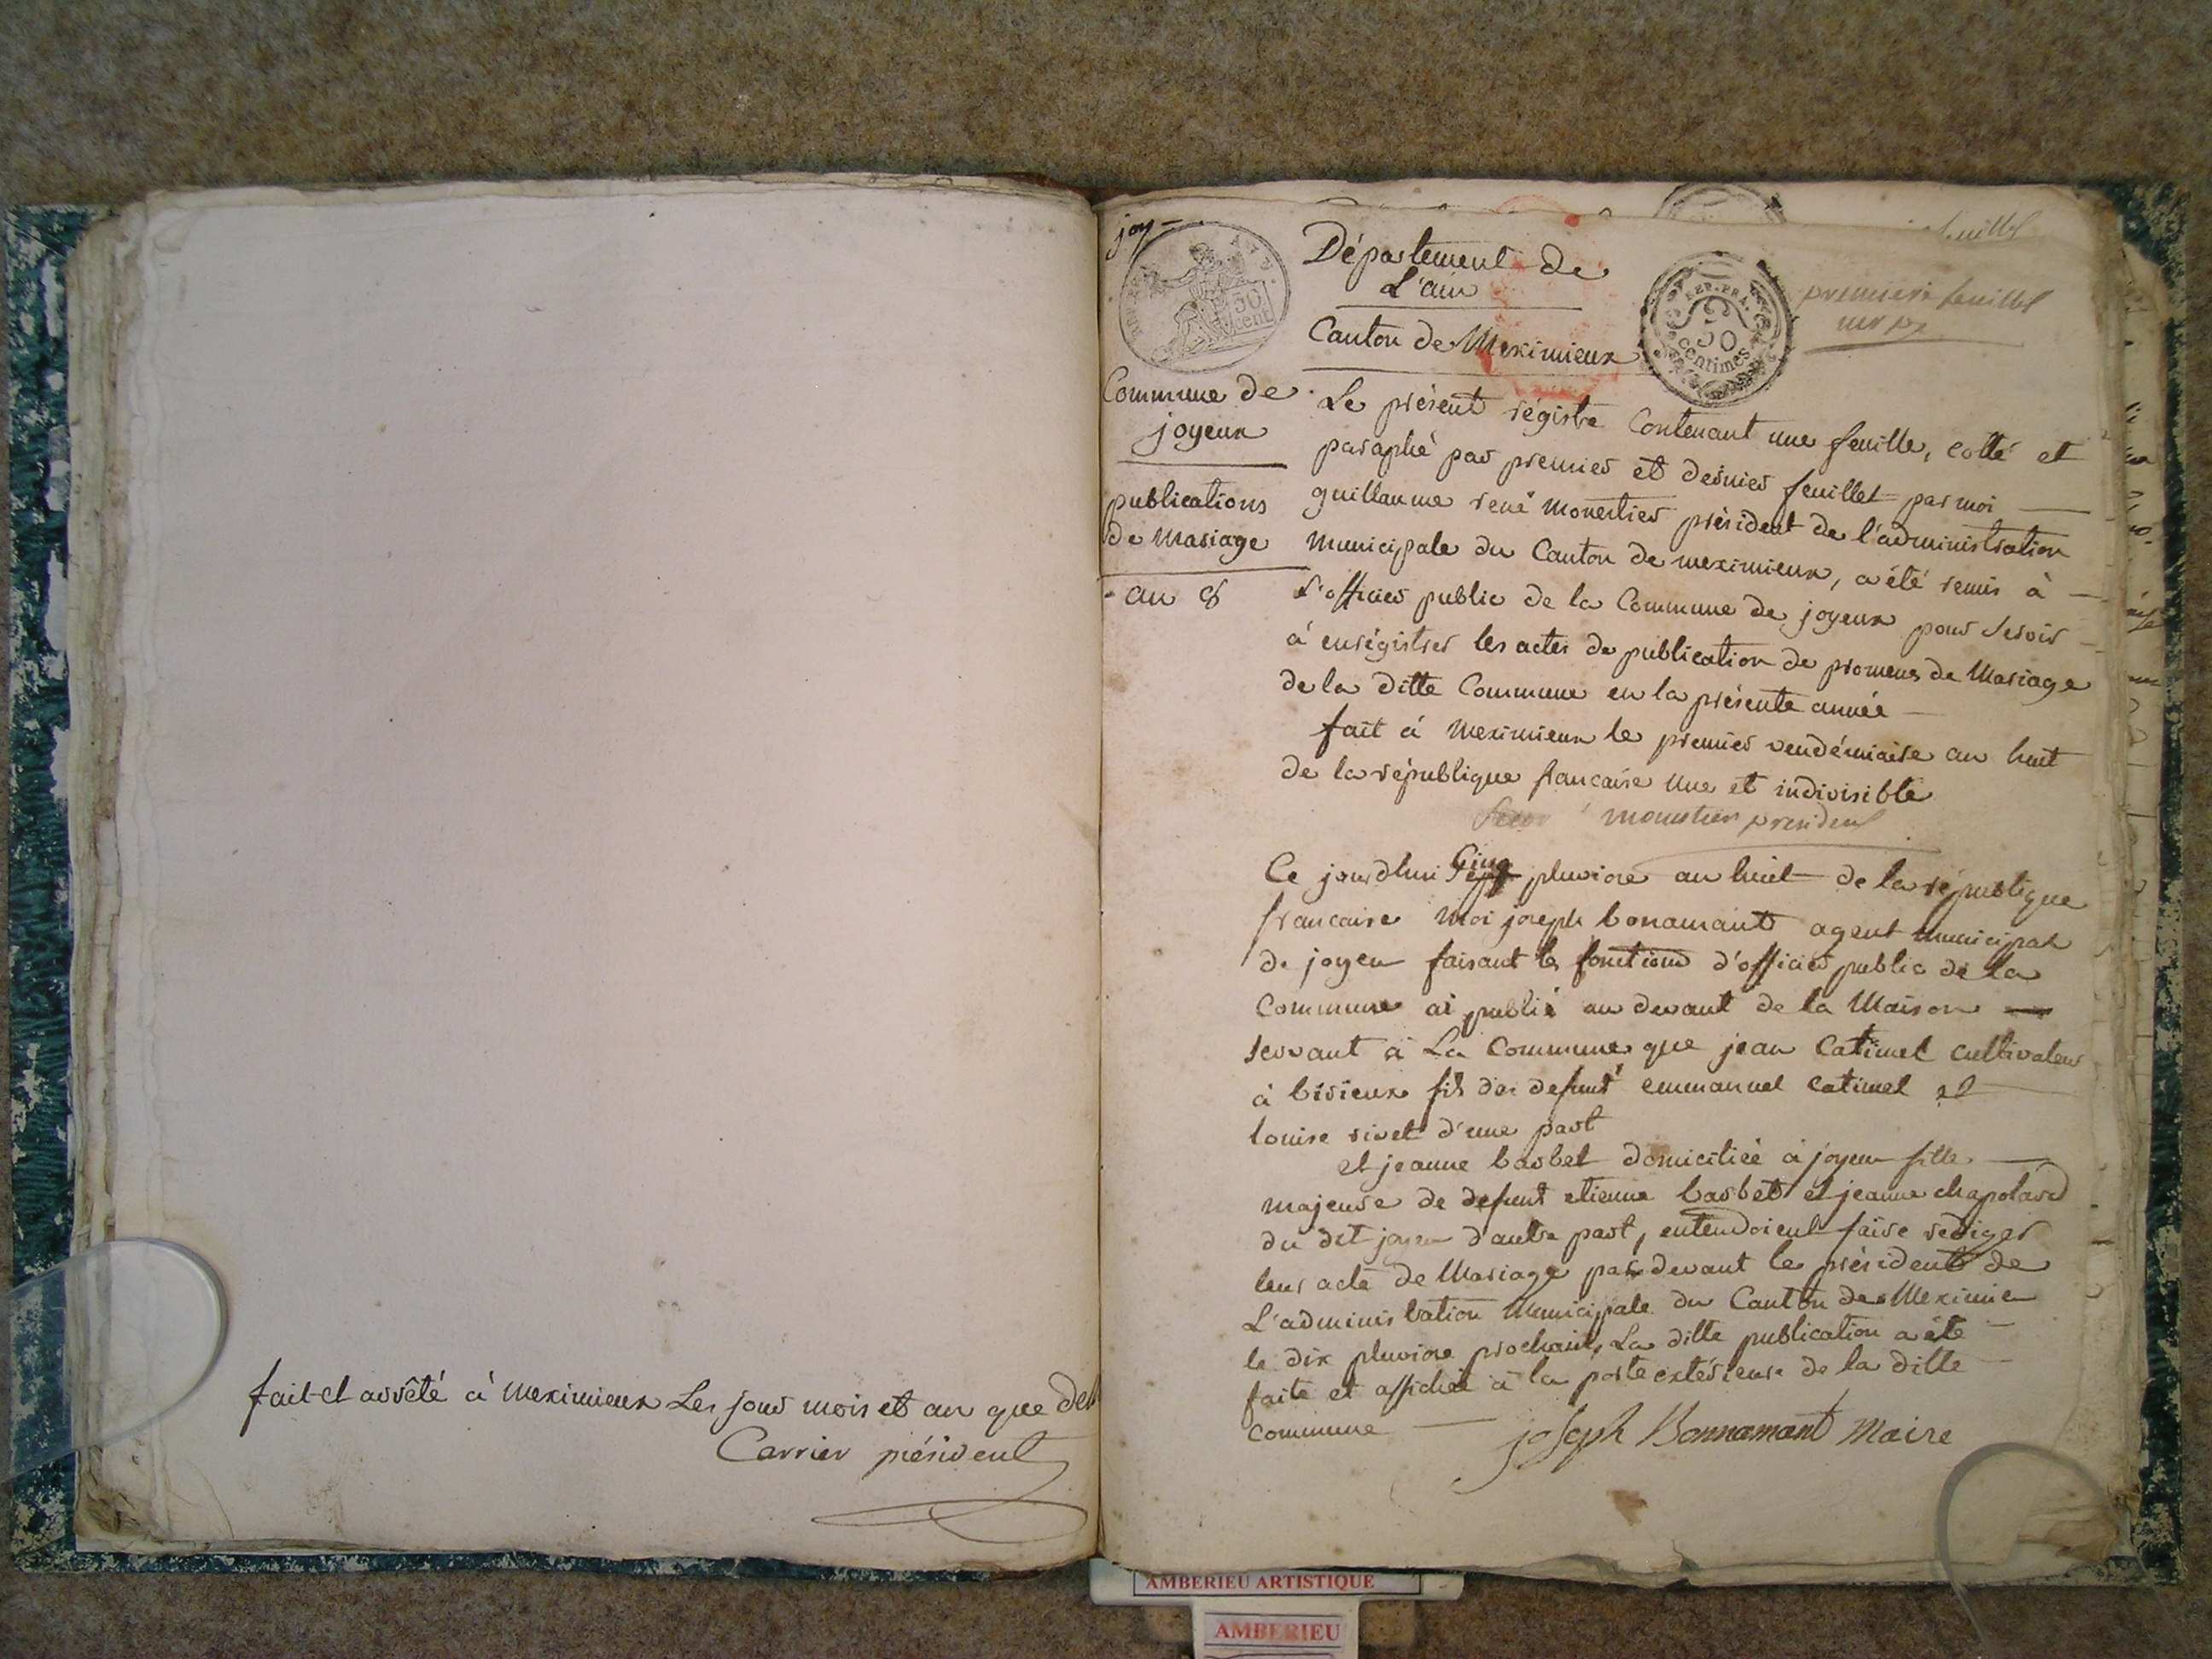 fait et arrêté à Meximieux Les jour mois et an que des
Carrier président
joy-
50
cent
Commune de
joyeux
publications
de Mariage
an 8
Département de
L'ain
Canton de Meximieux
REP. FRA.
50
centimes
premiere feuillet
Le présent régistre Contenant une feuille, cotté et
paraphé par premier et dernier feuillet par moi
guillaume rené Monestier président de l'administration
Municipale du Canton de meximieux, a été remis à
L'officier public de la Commune de joyeux pour servir
à enrégistrer les actes de publication de promeses de Mariage
de la ditte Commune en la présente année
fait à Meximieux le premier vendémiaire an huit
de la république francaise une et indivisible
monestier president
Ce jourdhui Cinq pluviose an huit de la république
francaise Moi joseph bonamant agent municipal
de joyeu faisant les fonctions d'officier public de la
Commune ai publié au devant de la Maison
servant à La Commune que jean Catimel cultivateur
à birieux fils des defunt emmanuel Catimel et
louise rivet d'une part
et jeanne barbet domiciliée à joyeu fille
majeure de defunt etienne barbet et jeanne chapolard
du dit joyeu d'autre part, entendoient faire rediger
leur acte de Mariage par devant le président de
L'administration Municipale du Canton de Meximie
le dix pluviose prochain, La ditte publication a été
faite et affichée à la porte extérieure de la ditte
Commune
joseph Bonnamant Maire
AMBERIEU ARTISTIQUE
AMBERIEU